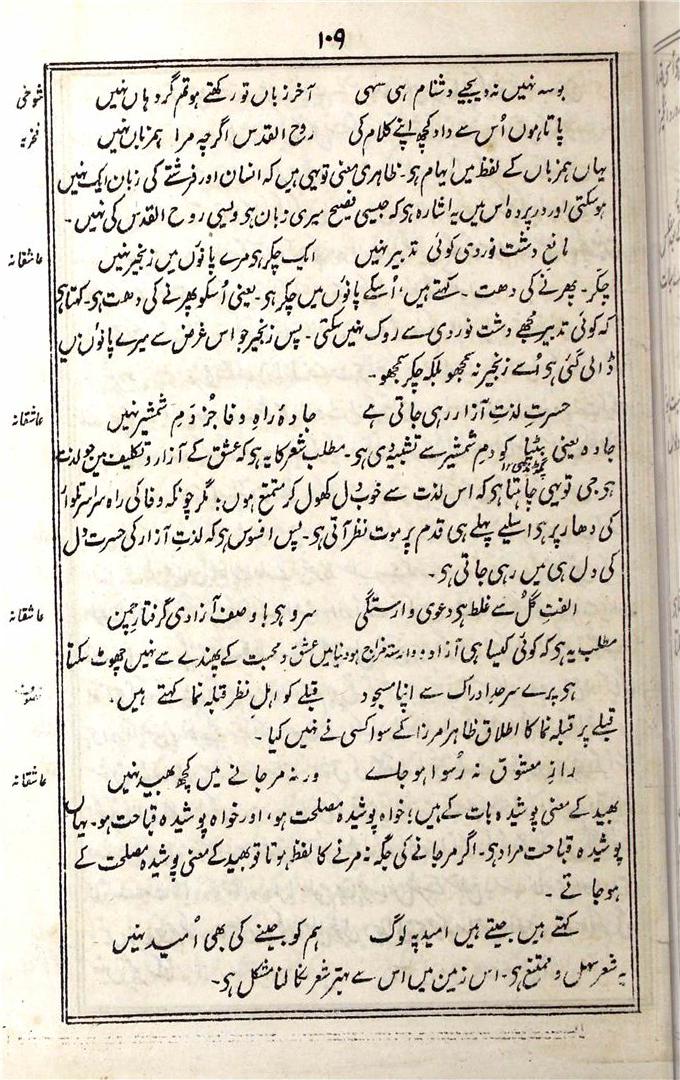 ۱۰۹
بوسہ نہیں نہ دیجیے دشنام ہی سہی آخر زباں تو رکھتے ہو تم گر دہاں نہیں شوخی
پاتا ہوں اُس سے داد کچھ اپنے کلام کی روح القدس اگرچہ مرا ہمزباں نہیں فخریہ
یہاں ہمزباں کے لفظ میں ایہام ہو۔ ظاہری معنی تو یہی ہیں کہ انسان اور فرشتے کی زبان ایک نہیں
ہوسکتی اور در پردہ اس میں یہ اشارہ ہو کہ جیسی فصیح میری زبان ہو ویسی روح القدس کی نہیں۔
مانع دشت نوردی کوئی تدبیر نہیں ایک چکر ہو مرے پانوں میں زنجیر نہیں عاشقانہ
چکّر۔ پھرنے کی دھت۔ کہتے ہیں، اسکے پانوں میں چکر ہو۔ یعنی اُسکو پھرنے کی دھت ہو۔ کہتا ہو
کہ کوئی تدبیر مجھے دشت نوردی سے روک نہیں سکتی۔ پس زنجیر جو اس غرض سے میرے پانوں میں
ڈالی گئی ہو اُسے زنجیر نہ سمجھو بلکہ چکر سمجھو۔
حسرتِ لذتِ آزار رہی جاتی ہے جادۂ راہِ وفا جُز دَمِ شمشیر نہیں عاشقانہ
جادہ یعنی بٹیا کو دمِ شمشیر سے تشبیہ دی ہو۔ مطلب شعر کا یہ ہو کہ عشق کے آزار و تکلیف میں جو لذت
ہو جی تو یہی چاہتا ہو کہ اس لذت سے خوب دل کھول کر متمتع ہوں؛ مگر چونکہ وفا کی راہ سراسر تلوار
کی دھار پر ہو اسلیے پہلے ہی قدم پر موت نظر آتی ہو۔ پس افسوس ہو کہ لذتِ آزار کی حسرت دل
کی دل ہی میں رہی جاتی ہو۔
الفتِ گل سے غلط ہو دعوی وارستگی سرو ہو با وصف آزادی گرفتارِ چمن عاشقانہ
مطلب یہ ہو کہ کوئی کیسا ہی آزادہ و وارستہ مزاج ہو دنیا میں عشق و محبت کے پھندے سے نہیں چھوٹ سکتا
ہو پرے سرحدِ ادراک سے اپنا مسجود قبلے کو اہلِ نظر قبلہ نما کہتے ہیں۔
قبلے پر قبلہ نما کا اطلاق ظاہرا مرزا کے سوا کسی نے نہیں کیا۔
رازِ معشوق نہ رُسوا ہو جاے ورنہ مر جانے میں کچھ بھید نہیں عاشقانہ
بھید کے معنی پوشیدہ بات کے ہیں؛ خواہ پوشیدہ مصلحت ہو، اور خواہ پوشیدہ قباحت ہو۔ یہاں
پوشیدہ قباحت مراد ہو۔ اگر مر جانے کی جگہ نہ مرنے کا لفظ ہوتا تو بھید کے معنی پوشیدہ مصلحت کے
ہو جاتے۔
کہتے ہیں جیتے ہیں امید پہ لوگ ہم کو جینے کی بھی اُمید نہیں
یہ شعر سہل و ممتنع ہو۔ اس زمین میں اس سے بہتر شعر نکالنا مشکل ہو۔